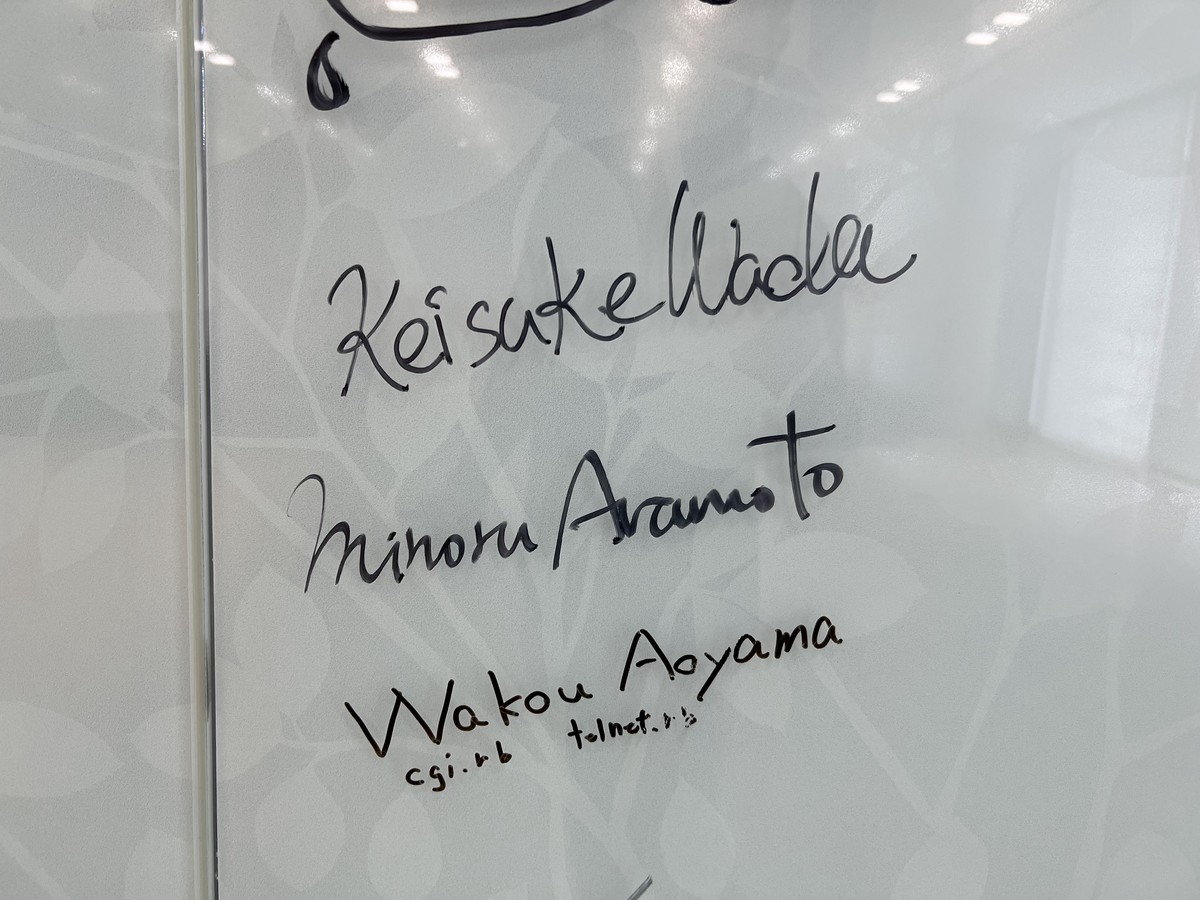 Keisuke Wada
Minoru Aramoto
Wakou Aoyama
cgi.rb telnet.rb